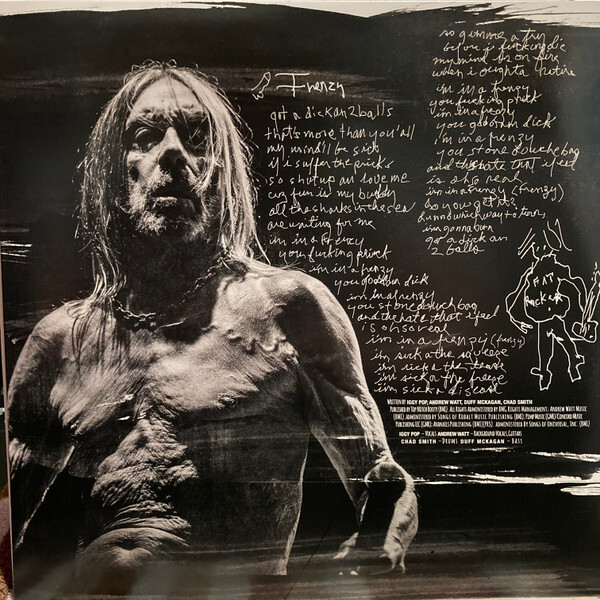 Frenzy
got a dick an 2 balls
that's more than you'all
my mind'll be sick
if i suffer the pricks
so shut up an love me
cuz fun is my buddy
all the sharks in the sea
are waiting for me
im in a frenzy
you fucking prick
im in a frenzy
you goddam dick
im in a frenzy
you stone douchebag
and the hate that i feel
is oh so real
im in a frenzy (frenzy)
im sick a the squeeze
im sick a the
im sick a the freeze
im sick a disease
so gimme a try
before i fucking die
my mind is on fire
when i oughta retire
im in a frenzy
you fucking prick
im in a frenzy
you goddam dick
i'm in a frenzy
you stone douchebag
and the hate that i feel
is oh so real
im in a frenzy (frenzy)
so you get it?
dunno which way to turn
im gonna burn
got a dick an
2 balls
FAT
FUCKER
WRITTEN BY IGGY POP, ANDREW WATT, DUFF MCKAGAN, CHAD SMITH
PUBLISHED BY TOP NOTCH BOOTY (BMI) ALL RIGHTS ADMINISTERED BY BMG RIGHTS MANAGEMENT; ANDREW WATT MUSIC
(BMI) ADMINISTERED BY SONGS OF KOBALT MUSIC PUBLISHING (BMI); PIMP MUSIC (GMR) CONCORD MUSIC
PUBLISHING LLC (GMR); PUBLISHING (BMI/EPRS) ADMINISTERED BY SONGS OF UNIVERSAL, INC. (BMI)
IGGY POP - VOCALS ANDREW WATT - BACKGROUND VOCALS, GUITARS
CHAD SMITH - DRUMS DUFF MCKAGAN - BASS